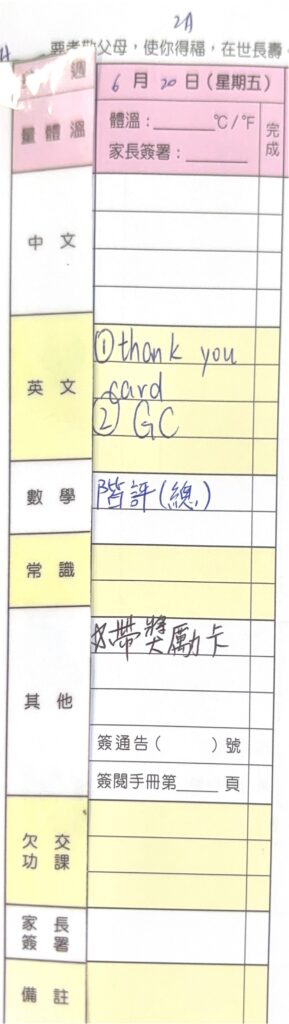 2A
要孝敬父母，使你得福，在世長壽。
週
6月20日(星期五)
量體溫
體溫：______℃/℉
家長簽署：______
完成
中文
英文
①thank you
card
② GC
數學
階評(總)
常識
其他
帶獎勵卡
簽通告(　　)號
簽閱手冊第____頁
欠交
功課
家長
簽署
備註